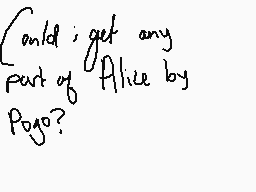 Could i get any
part of Alice by
Pogo?